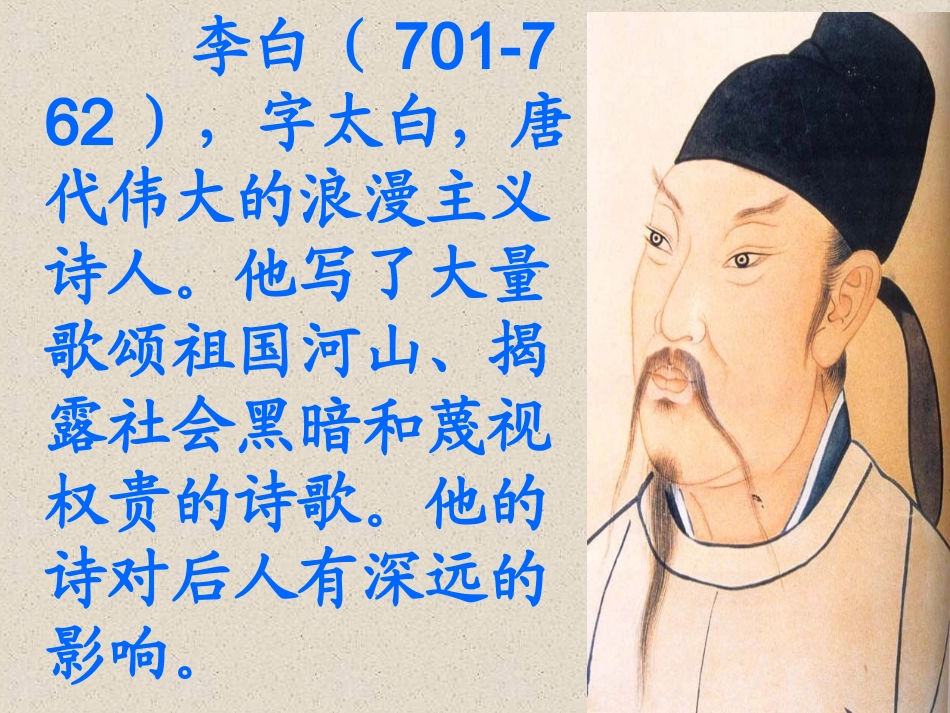 李白（701-7
62），字太白，唐
代伟大的浪漫主义
诗人。他写了大量
歌颂祖国河山、揭
露社会黑暗和蔑视
权贵的诗歌。他的
诗对后人有深远的
影响。